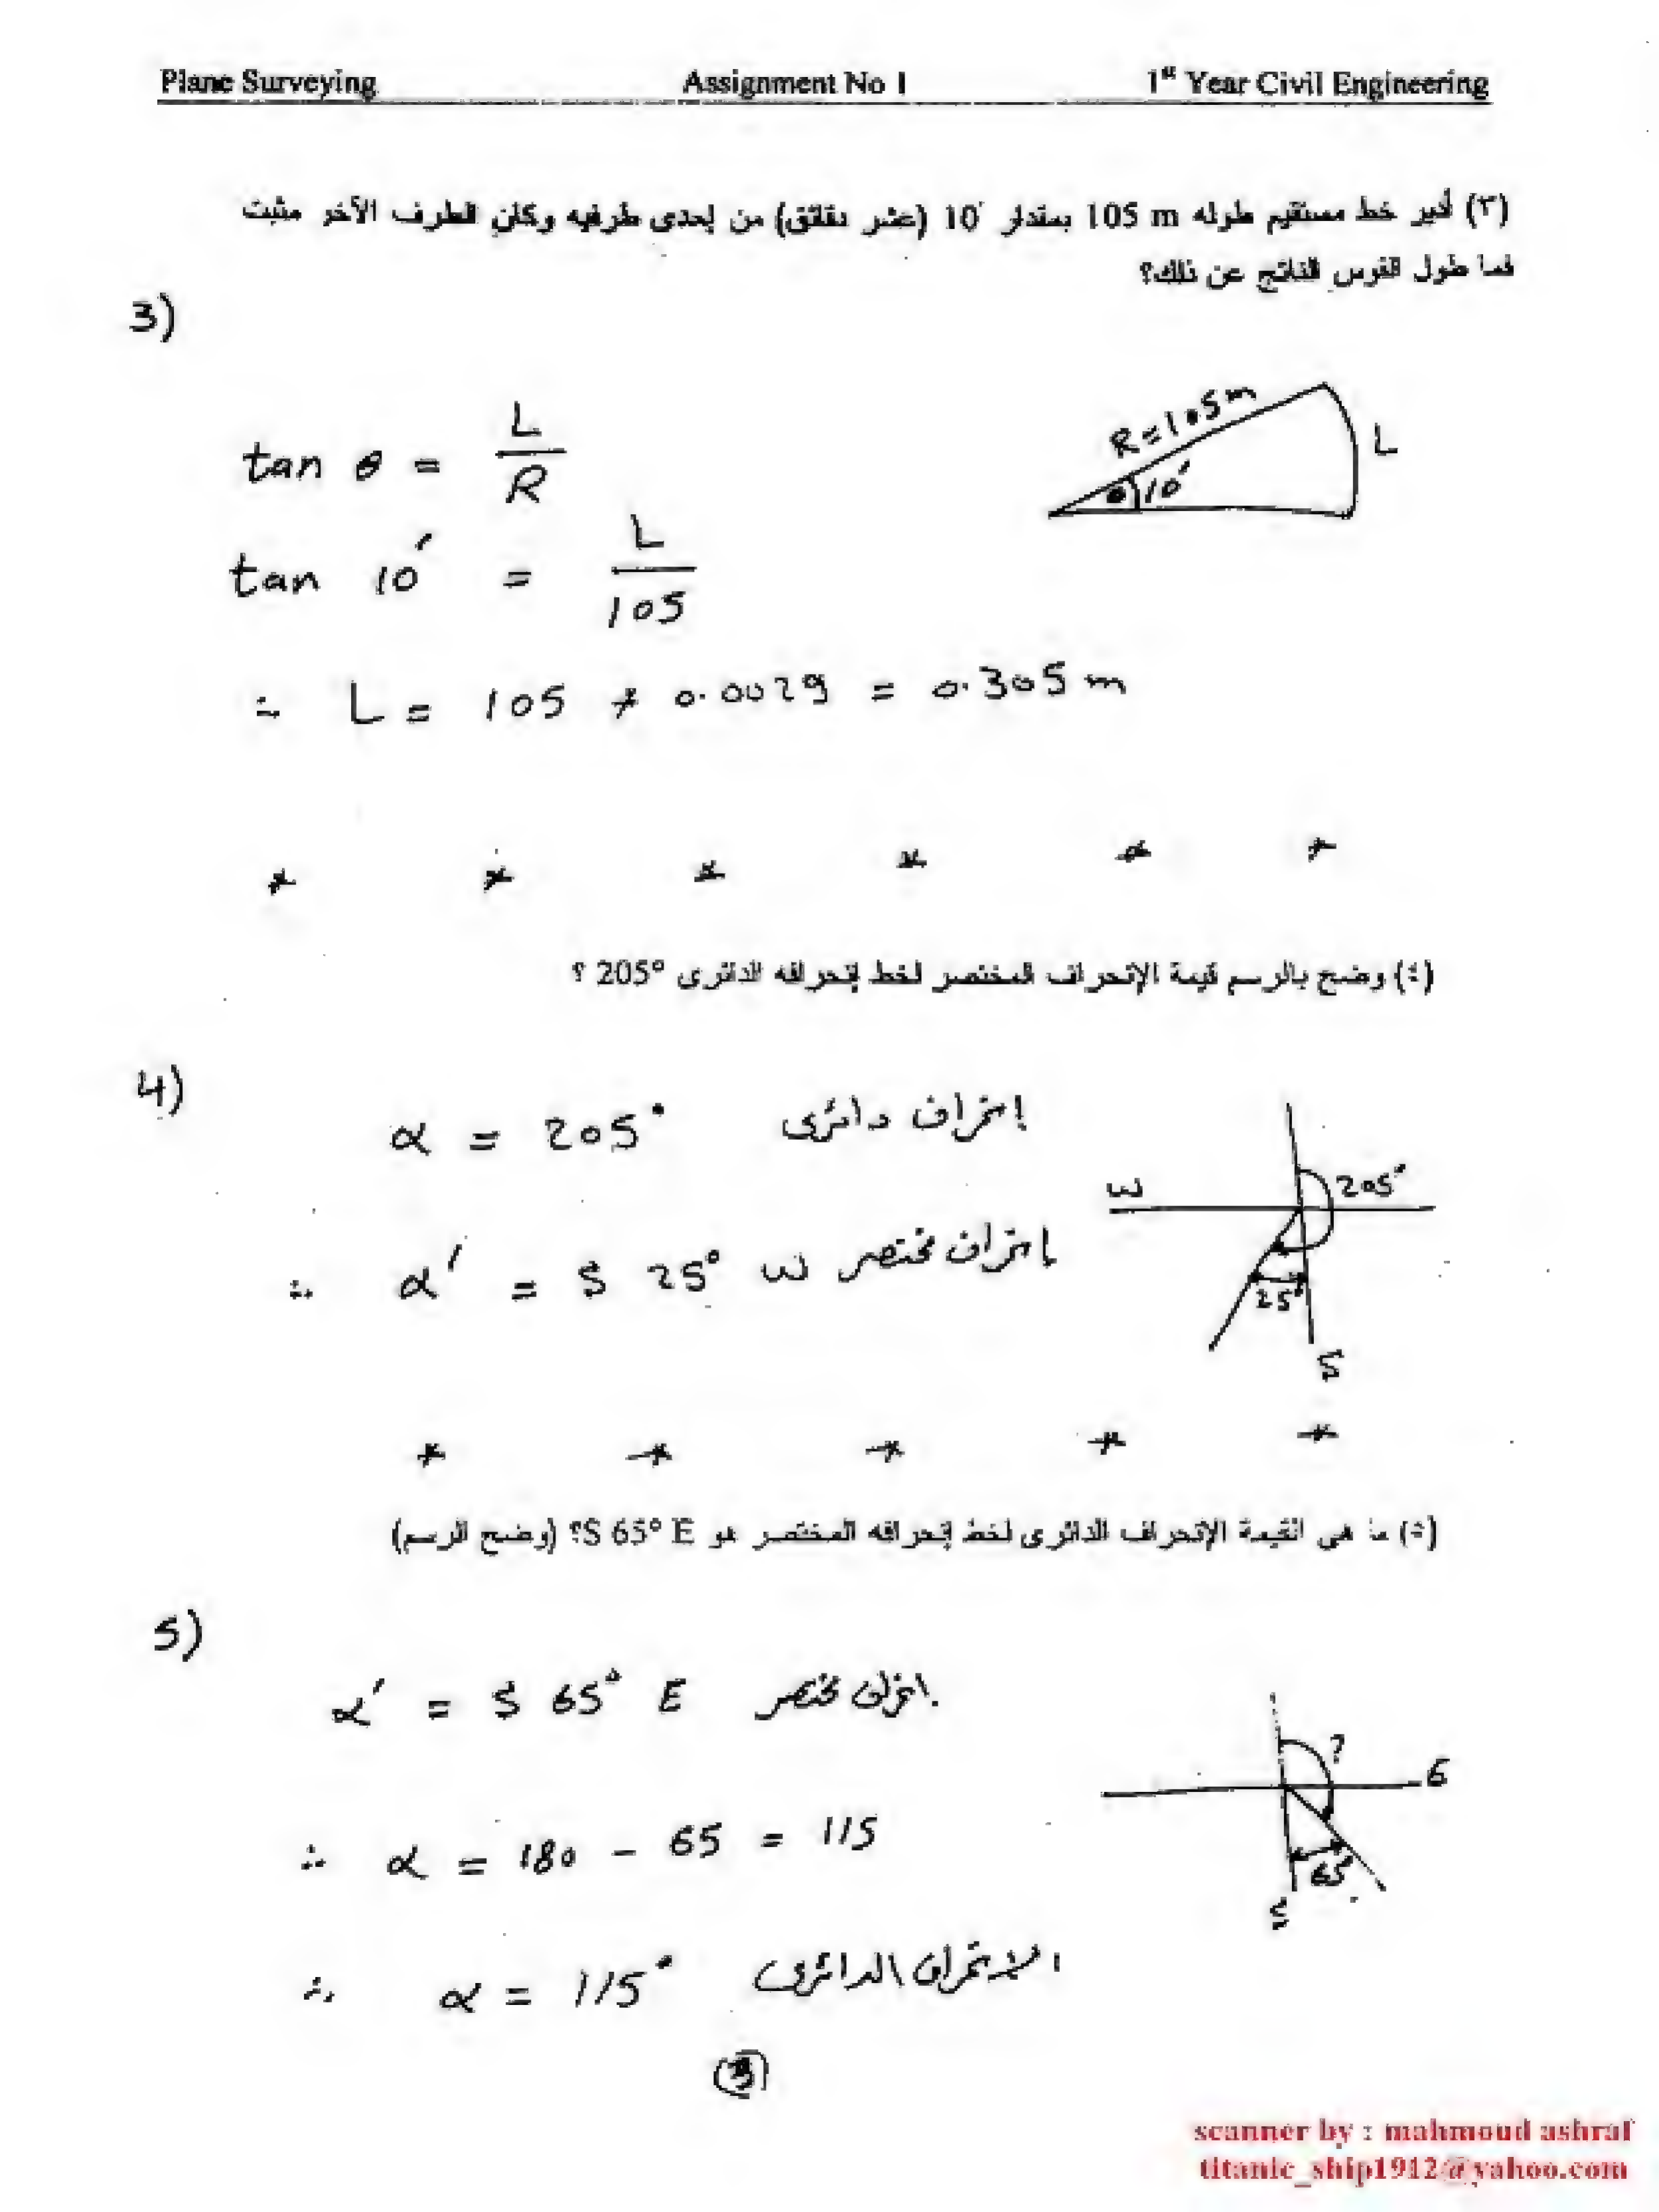 Plane Surveying Assignment No 1 1st Year Civil Engineering
(٣) أدير خط مستقيم طوله 105 m بمقدار 10' (عشر دقائق) من إحدى طرفيه وكان الطرف الآخر مثبت
فما طول القوس الناتج عن ذلك؟
3)
tan θ = L / R
R = 105 m
L
θ 10'
tan 10' = L / 105
∴ L = 105 * 0.0029 = 0.305 m
* * * * * *
(٤) وضح بالرسم قيمة الإنحراف المختصر لخط إنحرافه الدائرى 205° ؟
4)
α = 205° إنحراف دائرى
W 205°
∴ α' = S 25° W إنحراف مختصر
25°
S
* * * * *
(٥) ما هى القيمة الإنحراف الدائرى لخط إنحرافه المختصر هو S 65° E؟ (وضح الرسم)
5)
α' = S 65° E انحراف مختصر
?
E
∴ α = 180 - 65 = 115
65
S
∴ α = 115° الانحراف الدائرى
(3)
scanner by : mahmoud ashraf
titanic_ship1912@yahoo.com